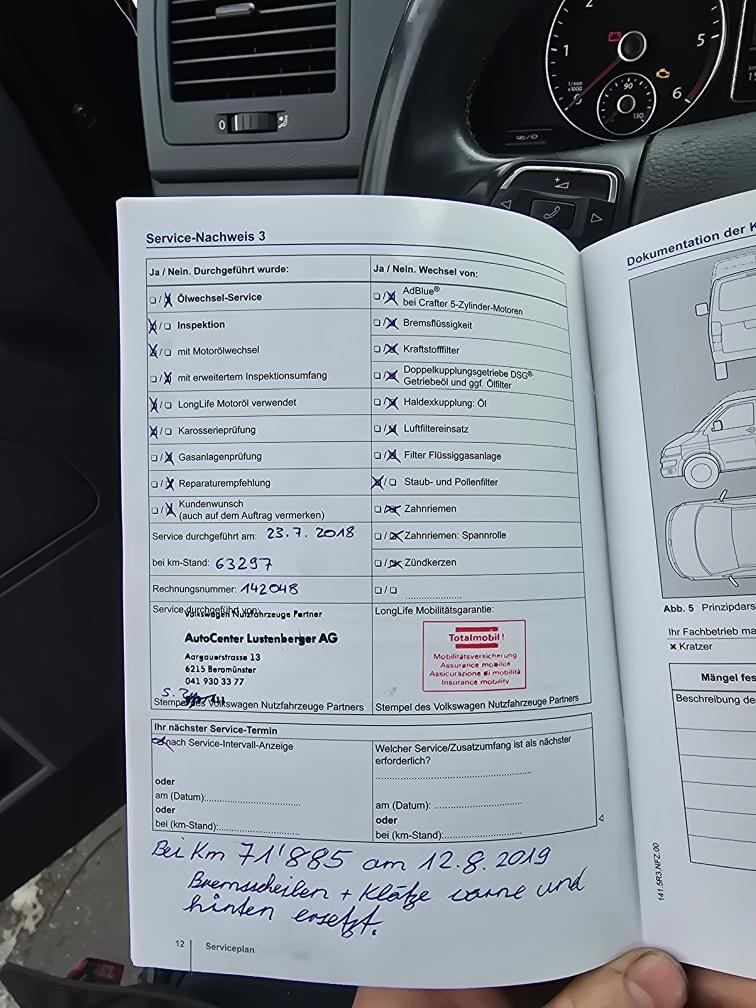 2
1
5
6
1/min
x1000
90
130
0
Service-Nachweis 3
Ja / Nein. Durchgeführt wurde:
Ja / Nein. Wechsel von:
Ölwechsel-Service
AdBlue®
bei Crafter 5-Zylinder-Motoren
Inspektion
Bremsflüssigkeit
mit Motorölwechsel
Kraftstofffilter
mit erweitertem Inspektionsumfang
Doppelkupplungsgetriebe DSG®:
Getriebeöl und ggf. Ölfilter
LongLife Motoröl verwendet
Haldexkupplung: Öl
Karosserieprüfung
Luftfiltereinsatz
Gasanlagenprüfung
Filter Flüssiggasanlage
Reparaturempfehlung
Staub- und Pollenfilter
Kundenwunsch
(auch auf dem Auftrag vermerken)
Zahnriemen
Service durchgeführt am: 23.7.2018
Zahnriemen: Spannrolle
bei km-Stand: 63297
Zündkerzen
Rechnungsnummer: 142048
Service durchgeführt von:
Volkswagen Nutzfahrzeuge Partner
AutoCenter Lustenberger AG
Aargauerstrasse 13
6215 Beromünster
041 930 33 77
Stempel des Volkswagen Nutzfahrzeuge Partners
LongLife Mobilitätsgarantie:
Totalmobil!
Mobilitätsversicherung
Assurance mobilité
Assicurazione di mobilità
Insurance mobility
Stempel des Volkswagen Nutzfahrzeuge Partners
Ihr nächster Service-Termin
nach Service-Intervall-Anzeige
oder
am (Datum):
oder
bei (km-Stand):
Welcher Service/Zusatzumfang ist als nächster
erforderlich?
am (Datum):
oder
bei (km-Stand):
Bei Km 71'885 am 12.8.2019
Bremsscheiben + Klötze vorne und
hinten ersetzt.
12
Serviceplan
141.5R3.NFZ.00
Dokumentation der
Abb. 5 Prinzipdars
Ihr Fachbetrieb ma
x Kratzer
Mängel fes
Beschreibung de